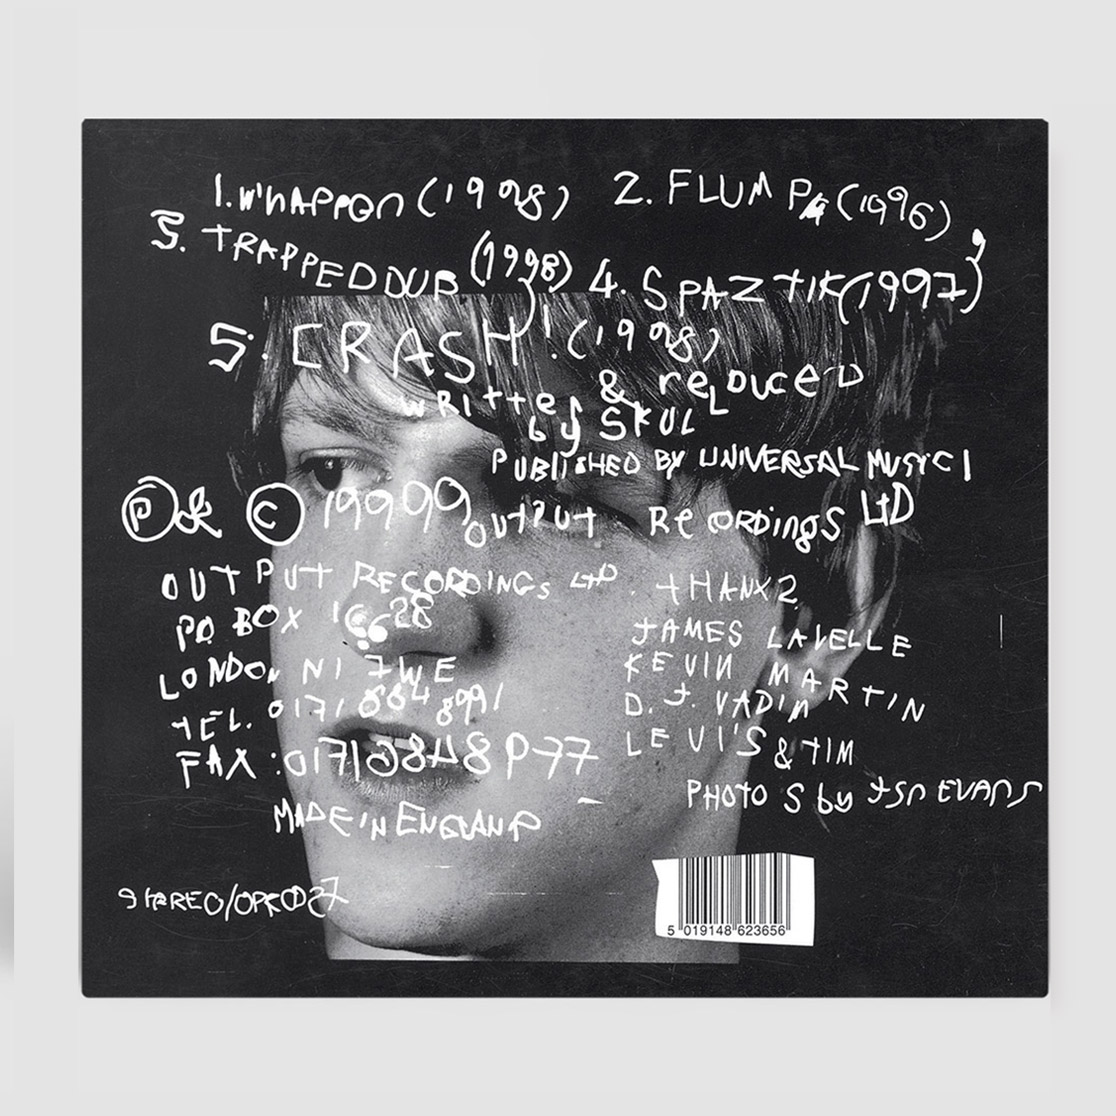 1. WHAPPEN (1998) 2. FLUMP (1996)
3. TRAPPED DUB (1998) 4. SPAZTIK (1997)
5. CRASH! (1998)
WRITTEN & RELDUCED
by SKUL
PUBLISHED BY UNIVERSAL MUSIC
P & © 19999 OUTPUT RECORDINGS LTD
OUTPUT RECORDINGS LTD.
PO BOX
LONDON N1 7WE
TEL. 0171 8991
FAX : 0171
MADE IN ENGLAND
THANX 2
JAMES LAVELLE
KEVIN MARTIN
D.J. VADIM
LEVI'S & TIM
PHOTOS by JSN EVANS
STEREO/OPRCD27
5 019148 623656